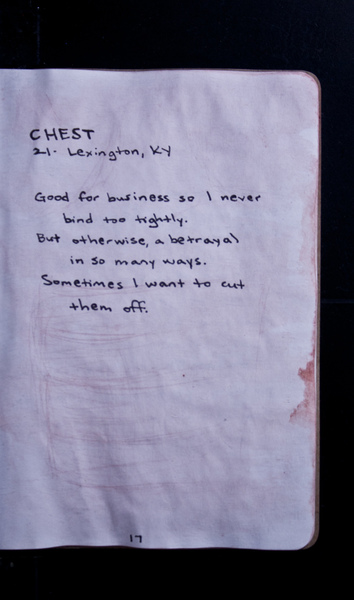 CHEST
21. Lexington, KY
Good for business so I never
bind too tightly.
But otherwise, a betrayal
in so many ways.
Sometimes I want to cut
them off.
17